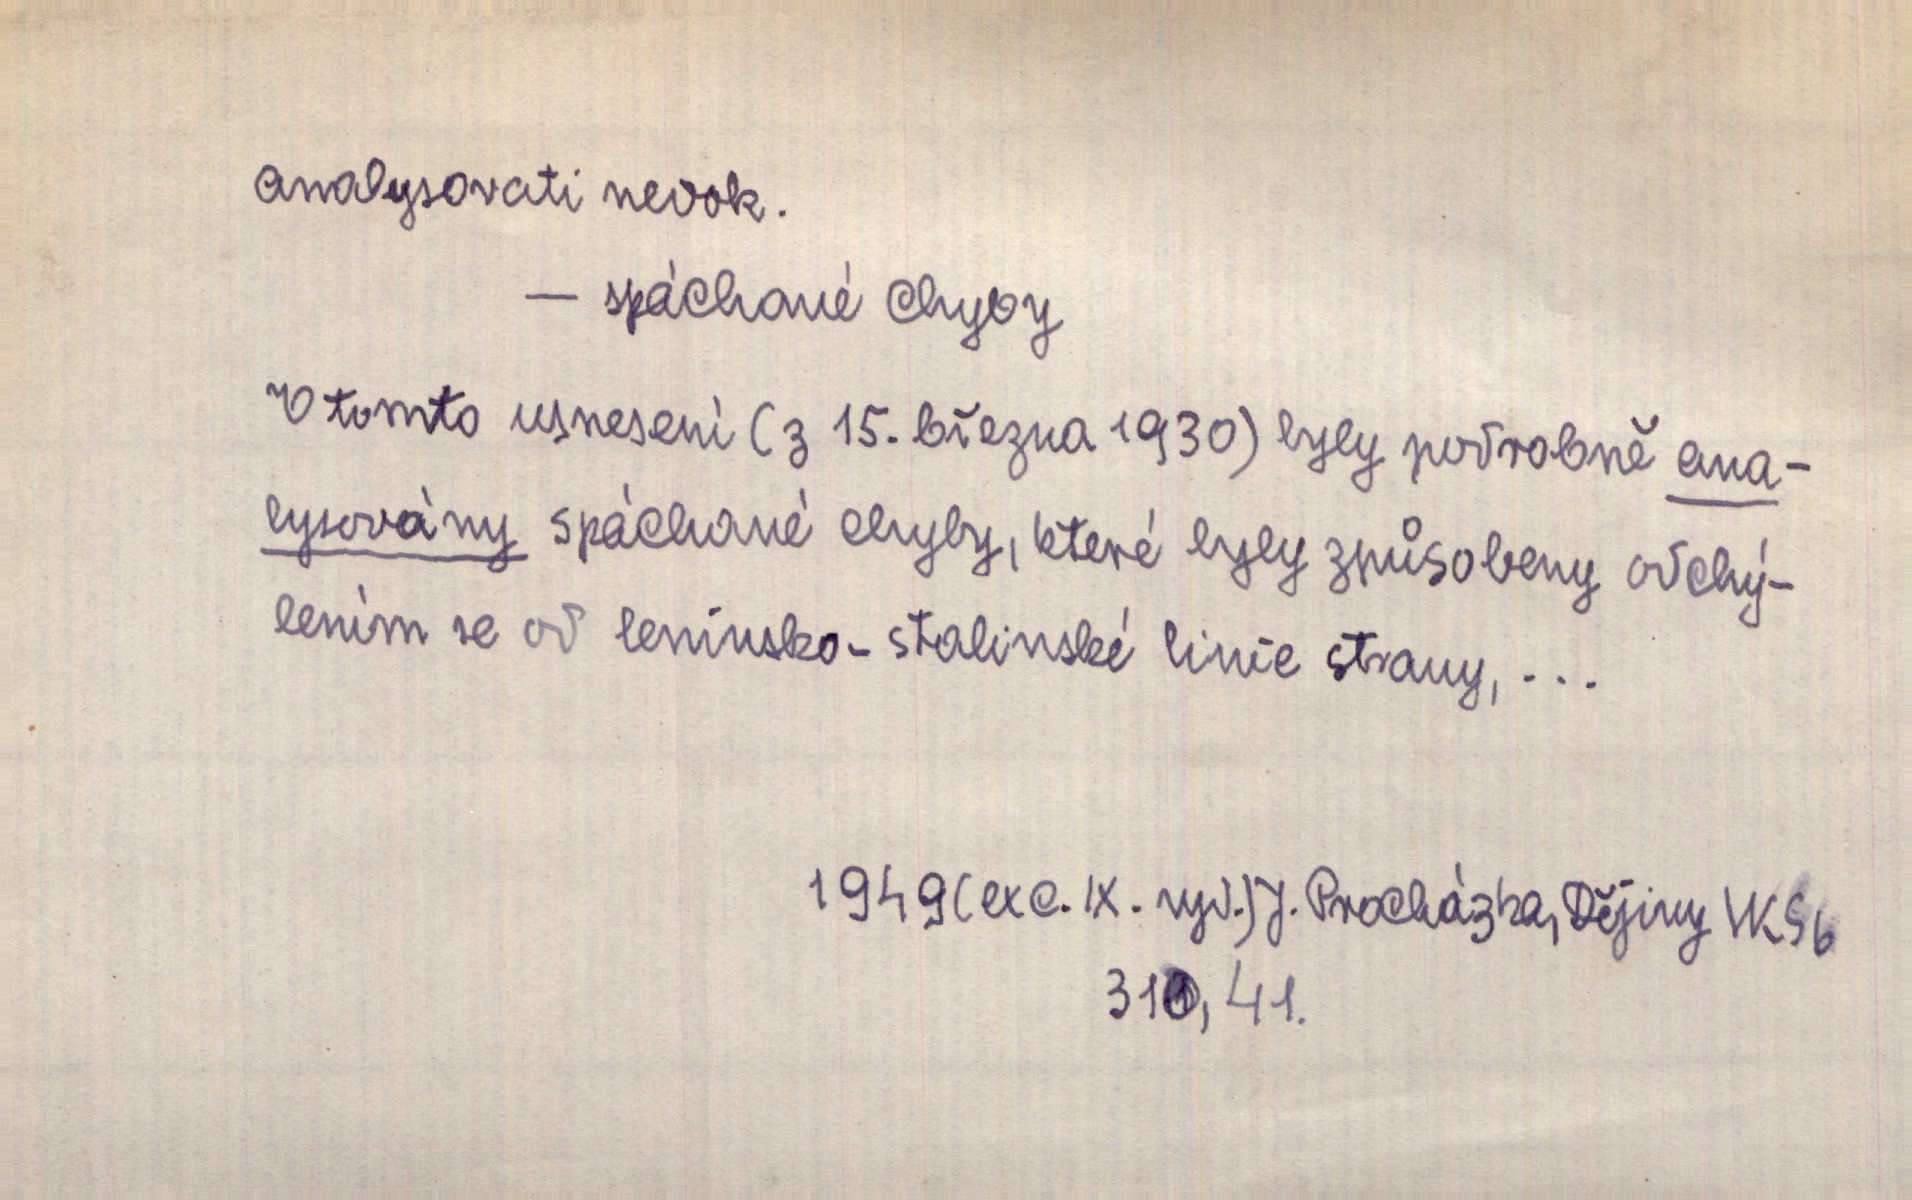 analysovati nedok.
— spáchané chyby
V tomto usnesení (z 15. března 1930) byly podrobně ana-
lysovány spáchané chyby, které byly způsobeny odchý-
lením se od leninsko-stalinské linie strany, ...
1949 (exc. IX. vyd.) J. Procházka, Dějiny VKSb
310, 41.